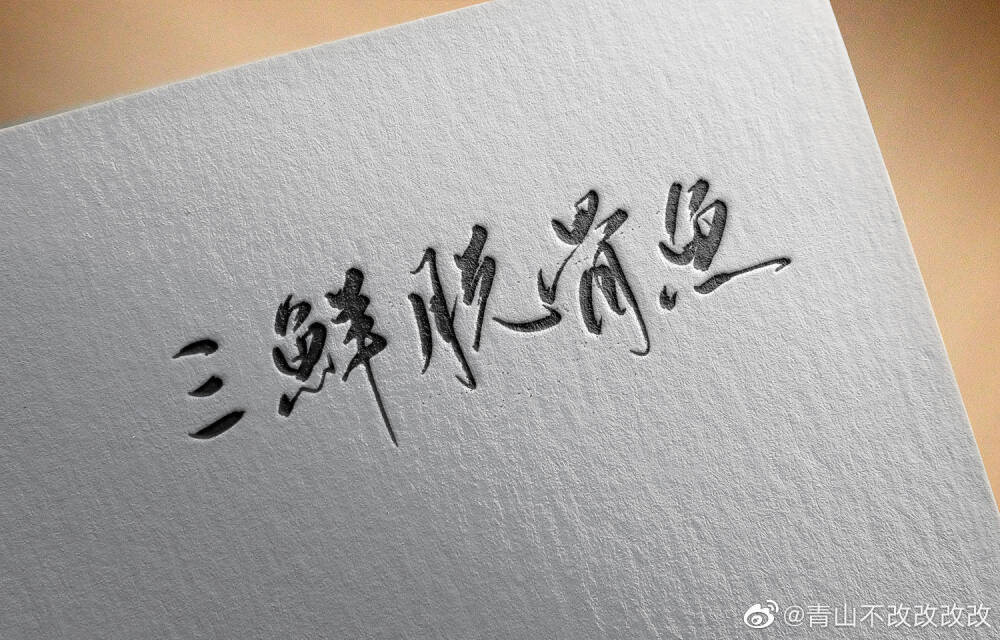 三鲜脱骨鱼
@青山不改改改改